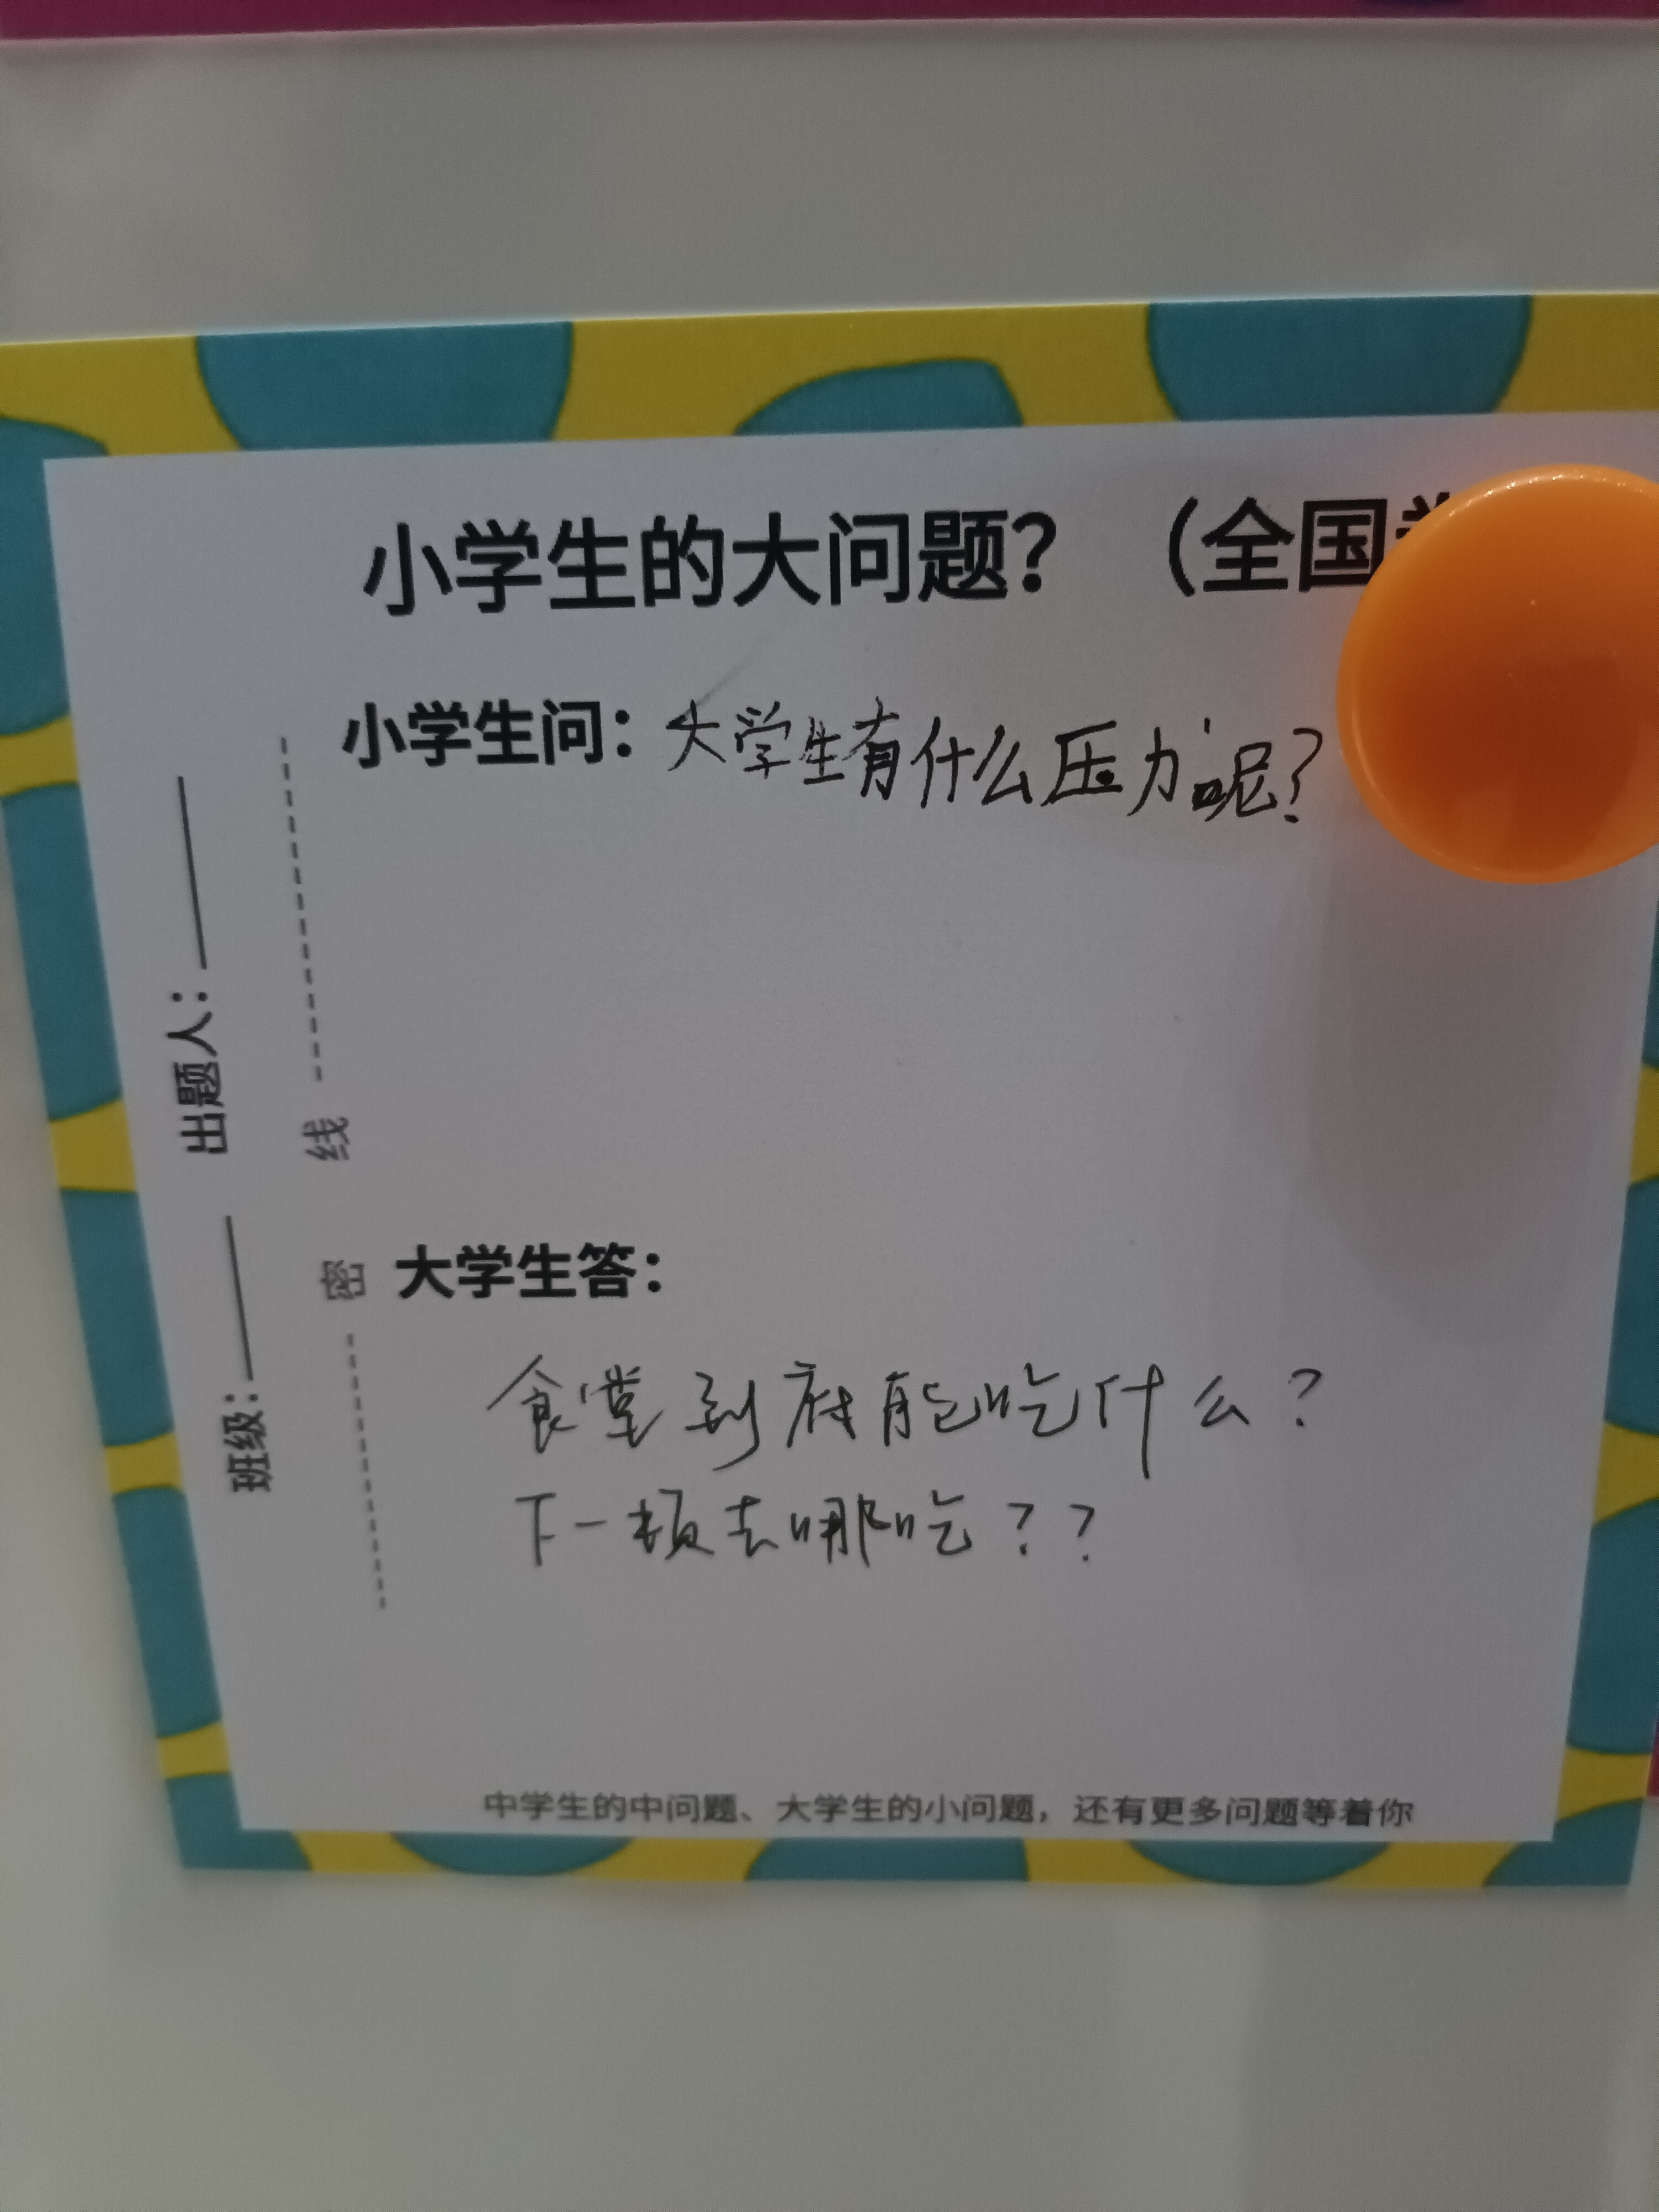 小学生的大问题？（全国
小学生问：大学生有什么压力呢？
出题人：
班级：
线
密
大学生答：
食堂到底能吃什么？
下一顿去哪吃？？
中学生的中问题、大学生的小问题，还有更多问题等着你